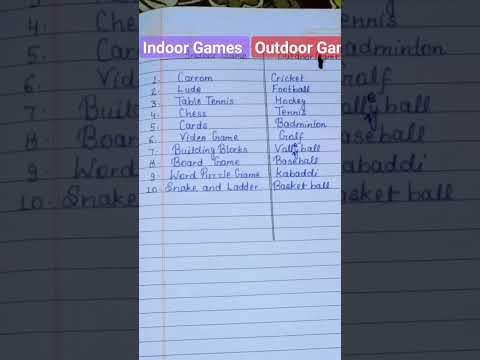 Indoor Games Outdoor Gar
1. Carrom Cricket
2. Lude Football
3. Table Tennis Hockey
4. Chess Tennis
5. Cards Badminton
6. Video Game Golf
7. Building Blocks Volleyball
8. Board Game Baseball
9. Word Puzzle Game Kabaddi
10. Snake and Ladder Basket ball
4. Che Tennis
5. Car Badminton
6. Video Golf
7. Buil eyball
8. Boar seball
9. Word abaddi
10. Snake sket ball